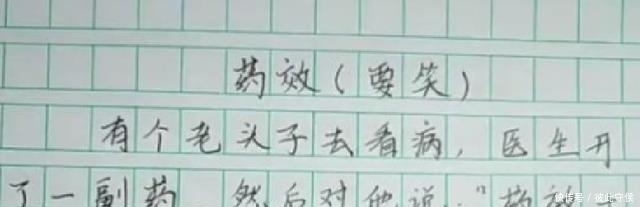 药效(要笑)
有个老头子去看病，医生开
了一副药 然后对他说："药效
搜狐号/彼此守候